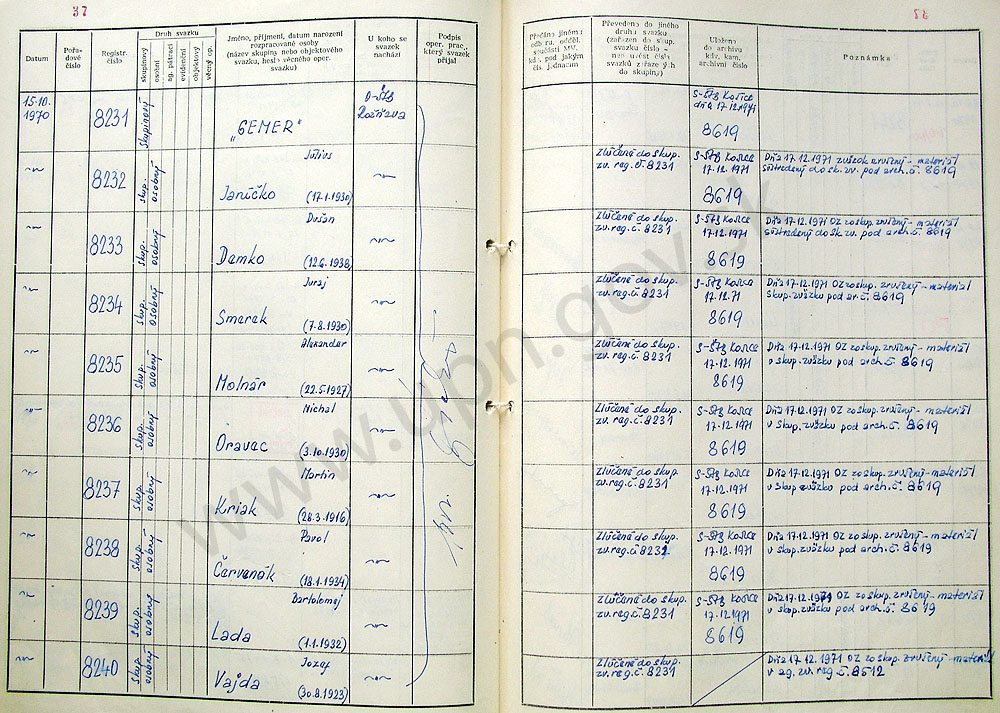 37
37
Datum
Pořadové číslo
Registr. číslo
Druh svazku
skupinový
osobní
ag. pátrací
evidenční
objektový
věcný op.
Jméno, příjmení, datum narození
rozpracované osoby
(název skupiny nebo objektového
svazku, heslo věcného oper.
svazku)
U koho se
svazek
nachází
Podpis
oper. prac.,
který svazek
přijal
Převedeno do jiného
druhu svazku
(zařazen do skup.
svazku číslo -
svazků zařazených
do skupiny)
Uloženo
do archivu
kdy, kam,
archivní číslo
Poznámka
15.10.
1970
8231
Skupinový
„GEMER"
O-ŠtB
Rožňava
S-ŠtB Košice
dňa 17.12.1971
8619
8232
skup. osobný
Július
Janíčko (17.1.1930)
Zlúčené do skup.
zv. reg. č. 8231
S-ŠtB Košice
17.12.1971
8619
Dňa 17.12.1971 zväzok zrušený - materiál
sústredený do sk. zv. pod arch. č. 8619
8233
skup. osobný
Dušan
Demko (12.6.1938)
Zlúčené do skup.
zv. reg. č. 8231
S-ŠtB Košice
17.12.1971
8619
Dňa 17.12.1971 OZ zo skup. zrušený - materiál
sústredený do sk. zv. pod arch. č. 8619
8234
skup. osobný
Juraj
Smerek (7.8.1930)
Zlúčené do skup.
zv. reg. č. 8231
S-ŠtB Košice
17.12.71
8619
Dňa 17.12.1971 OZ zo skup. zrušený - materiál
Skup. zväzku pod ar. č. 8619
8235
skup. osobný
Alexander
Molnár (22.5.1927)
Zlúčené do skup.
zv. reg. č. 8231
S-ŠtB Košice
17.12.1971
8619
Dňa 17.12.1971 OZ zo skup. zrušený - materiál
v skup. zväzku pod arch. č. 8619
8236
skup. osobný
Michal
Oravec (3.10.1930)
Zlúčené do skup.
zv. reg. č. 8231
S-ŠtB Košice
17.12.1971
8619
Dňa 17.12.1971 OZ zo skup. zrušený - materiál
v Skup. zväzku pod arch. č. 8619
8237
skup. osobný
Martin
Kriak (28.3.1916)
Zlúčené do skup.
zv. reg. č. 8231
S-ŠtB Košice
17.12.1971
8619
Dňa 17.12.1971 OZ zo skup. zrušený - materiál
v Skup. zväzku pod arch. č. 8619
8238
skup. osobný
Pavol
Červenák (18.1.1934)
Zlúčené do skup.
zv. reg. č. 8231
S-ŠtB Košice
17.12.1971
8619
Dňa 17.12.1971 OZ zo skup. zrušený - materiál
v skup. zväzku pod arch. č. 8619
8239
skup. osobný
Bartolomej
Lada (1.1.1932)
Zlúčené do skup.
zv. reg. č. 8231
S-ŠtB Košice
17.12.1971
8619
Dňa 17.12.1971 OZ zo skup. zrušený - materiál
v skup. zväzku pod arch. č. 8619
8240
skup. osobný
Jozef
Vajda (30.8.1923)
Zlúčené do skup.
zv. reg. č. 8231
Dňa 17.12.1971 OZ zo skup. zrušený - materiál
v ag. zv. reg. č. 8512
www.upn.gov.sk